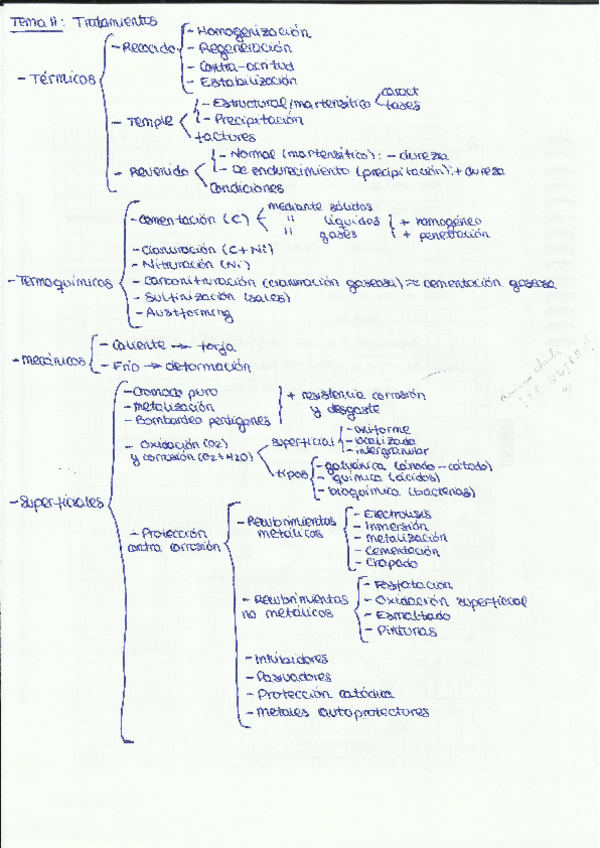 Tema 11: Tratamientos
- Térmicos
- Recocido
- Homogenización
- Regeneración
- Contra-acritud
- Estabilización
- Temple
- Estructural/martensítico
caract
fases
- Precipitación
factores
- Revenido
- Normal (martensítico): - dureza
- De endurecimiento (precipitación): + dureza
Condiciones
- Termoquímicos
- Cementación (C)
mediante sólidos
" líquidos
" gases
+ homogéneo
+ penetración
- Cianuración (C+Ni)
- Nitruración (Ni)
- Carbonitruración (cianuración gaseosa) ≈ cementación gaseosa
- Sulfinización (sales)
- Austforming
- Mecánicos
- Caliente → forja
- Frío → deformación
- Superficiales
- Cromado puro
- Metalización
- Bombardeo perdigones
+ resistencia corrosión
y desgaste
- Oxidación (O2)
y corrosión (O2+H2O)
superficial
- uniforme
- localizada
- intergranular
tipos
- galvánica (ánodo-cátodo)
- química (ácidos)
- bioquímica (bacterias)
- Protección
contra corrosión
- Recubrimientos
metálicos
- Electrólisis
- Inmersión
- Metalización
- Cementación
- Chapado
- Recubrimientos
no metálicos
- Fosfatación
- Oxidación superficial
- Esmaltado
- Pinturas
- Inhibidores
- Pasivadores
- Protección catódica
- Metales autoprotectores